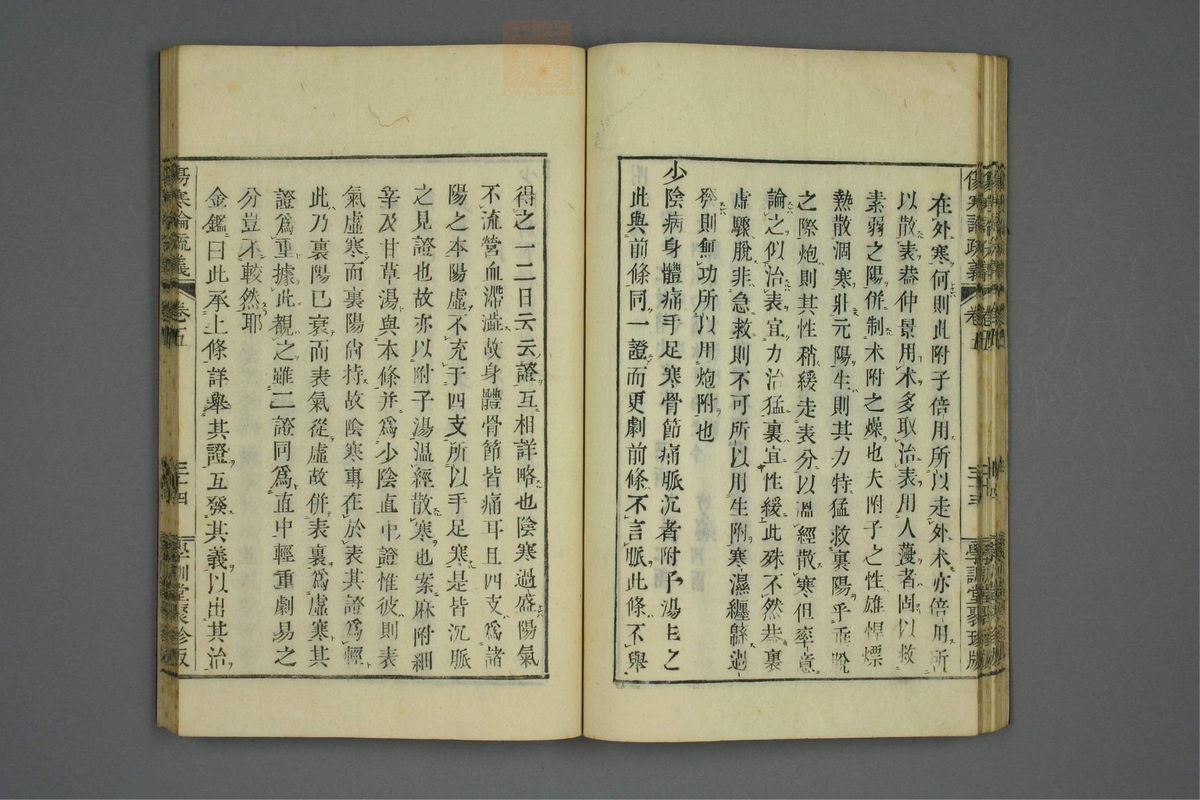 在外寒何則此附子倍用所以走外术亦倍用所
以散表葢仲景用术多取治表用人薓者固以救
素弱之陽併制术附之燥也夫附子之性雄悍熛
熱散涸寒壯元陽生則其力特猛救裏陽乎垂脫
之際炮則其性稍緩走表分以溫經散寒但率意
論之似治表宜力治猛裏宜性緩此殊不然葢裏
虛驟脫非急救則不可所以用生附寒濕纏緜過
發則無功所以用炮附也
少陰病身體痛手足寒骨節痛脈沉者附子湯主之
此與前條同一證而更劇前條不言脈此條不舉
得之一二日云云證互相詳略也陰寒過盛陽氣
不流營血滯澁故身體骨節皆痛耳且四支爲諸
陽之本陽虛不充于四支所以手足寒是皆沉脈
之見證也故亦以附子湯溫經散寒也案麻附細
辛及甘草湯與本條并爲少陰直中證惟彼則表
氣虛寒而裏陽尙持故陰寒專在於表其證爲輕
此乃裏陽已衰而表氣從虛故併表裏爲虛寒其
證爲重據此觀之雖二證同爲直中輕重劇易之
分豈不較然耶
金鑑曰此承上條詳舉其證互發其義以出其治
傷寒論疏義
卷五
三十三
學訓堂聚珍版
傷寒論疏義
卷五
三十四
學訓堂聚珍版